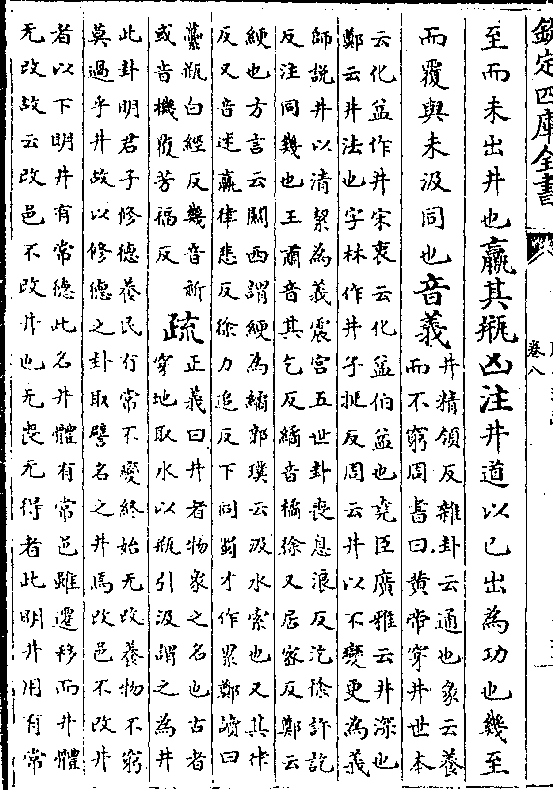 欽定四庫全書
卷八
至而未出井也羸其瓶凶注井道以已出為功也幾至
而覆與未汲同也音義井精領反雜卦云通也彖云養
而不窮周書曰黄帝穿井世本
云化益作井宋衷云化益伯益也堯臣廣雅云井深也
鄭云井法也字林作丼子挺反周云井以不變更為義
師說井以清絜為義震宫五世卦喪息浪反汔徐許訖
反注同幾也王肅音其乞反繘音橘徐又居密反鄭云
綆也方言云關西謂綆為繘郭璞云汲水索也又其律
反又音述羸律悲反徐力追反下同蜀才作累鄭讀曰
虆瓶白經反幾音祈
或音機覆芳福反
疏正義曰井者物象之名也古者
穿地取水以瓶引汲謂之為井
此卦明君子修德養民有常不變終始无改養物不窮
莫過乎井故以修德之卦取譬名之井焉改邑不改井
者以下明井有常德此名井體有常邑雖遷移而井體
无改故云改邑不改井也无喪无得者此明井用有常